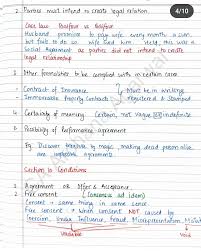 2. Parties must intend to create legal relation.
4/10
Case law: Balfour vs Balfour
Husband promised to pay wife every month a sum
but fails to do so. Wife sued him. Held, this was a
Social Agreement as parties did not intend to create
legal relationship
3. Other formalities to be complied with in certain cases
Contract of Insurance Must be in writing
Immovable Property Contracts Registered & Stamped
4. Certainty of meaning Certain, not vague or indefinite
5. Possibility of Performance agreement
Eg. Discover treasure by magic, making dead person alive
are impossible agreements
Section 10 Conditions
1. Agreement or Offer & Acceptance
2. Free consent (Consensus ad idem)
Consent → same thing in same sense
Free consent → When consent NOT caused by
Coercion, Undue influence, Fraud, Misrepresentation, Mistake
Voidable Void